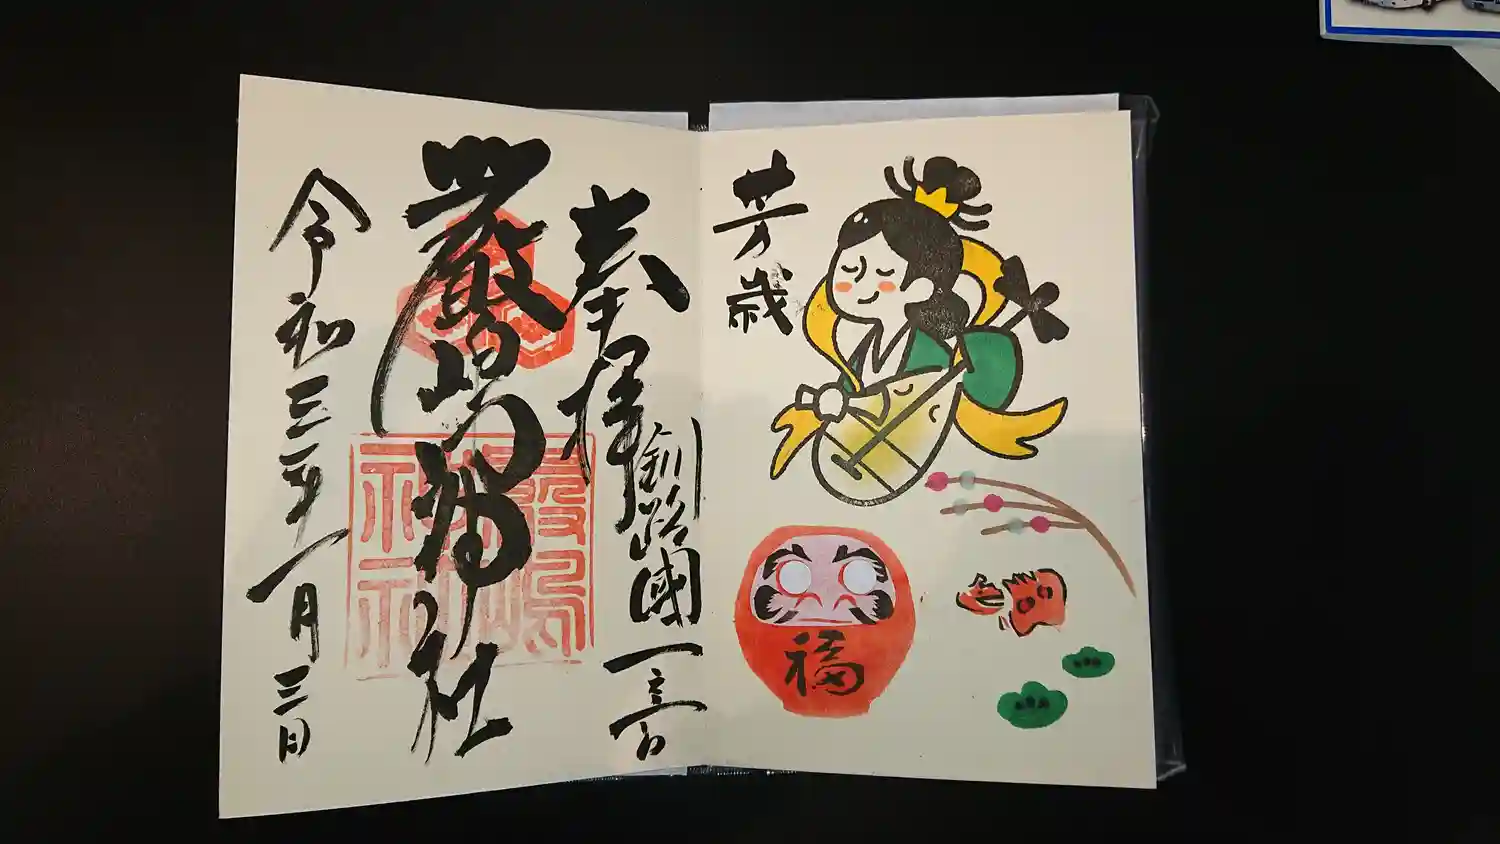 芳歳
福
奉拝
釧路國一之宮
厳島神社
厳島
神社
令和三年一月三日